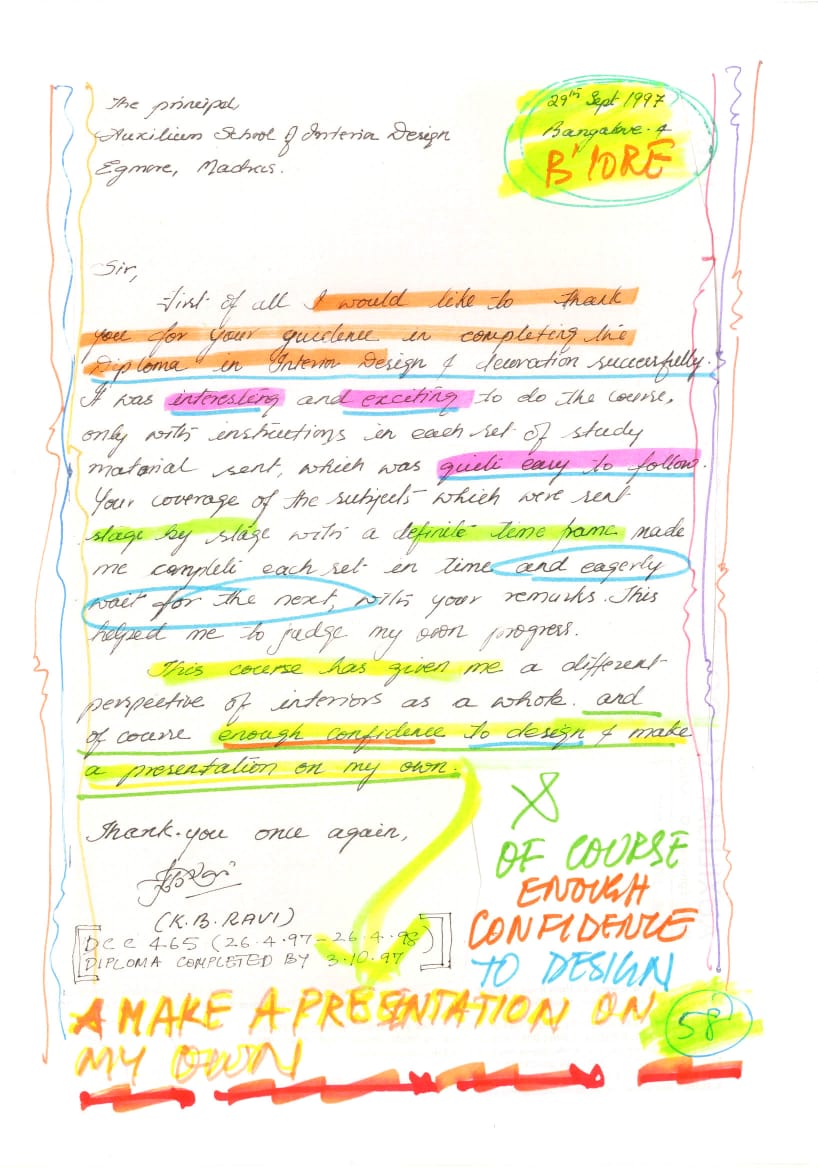 The principal
Auxilium School of Interior Design
Egmore, Madras.
29th Sept 1997
Bangalore. 4
B'LORE
Sir,
First of all I would like to thank
you for your guidence in completing the
Diploma in Interior Design & decoration successfully.
It was interesting and exciting to do the course,
only with instructions in each set of study
material sent, which was quite easy to follow.
Your coverage of the subjects which were sent
stage by stage with a definite time frame made
me complete each set in time and eagerly
wait for the next, with your remarks. This
helped me to judge my own progress.
This course has given me a different
perspective of interiors as a whole. and
of course enough confidence to design & make
a presentation on my own.
Thank-you once again,
(K.B. RAVI)
DCC 465 (26.4.97-26.4.98)
DIPLOMA COMPLETED BY 3.10.97
OF COURSE
ENOUGH
CONFIDENCE
TO DESIGN
& MAKE A PRESENTATION ON
MY OWN
58